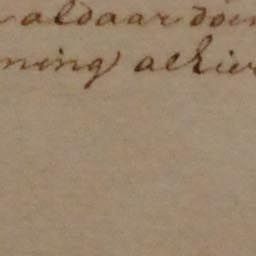 aldaar doen
ning achier